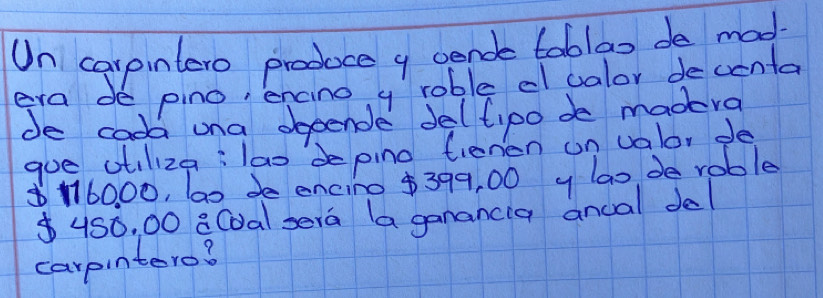 Un carpintero produce y vende tablas de mad-
era de pino, encino y roble el valor de venta
de cada una depende del tipo de madera
que utiliza: las de pino tienen un valor de
las de encino $399,00 y las de roble
¿Cual será la ganancia anual del
carpintero?